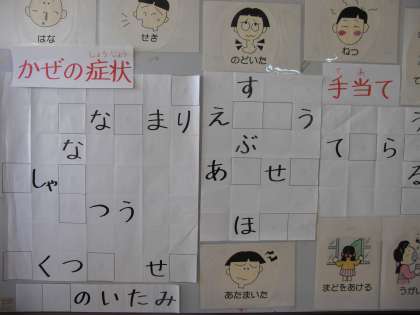 はな
せき
のどいた
ねつ
しょうじょう
かぜの症状
て あ
手当て
す
な まり
え う
う
な
ぶ
て ら
しゃ
あ せ
る
つう
くつ せ
ほ
のいたみ
あたまいた
まどをあける
うが